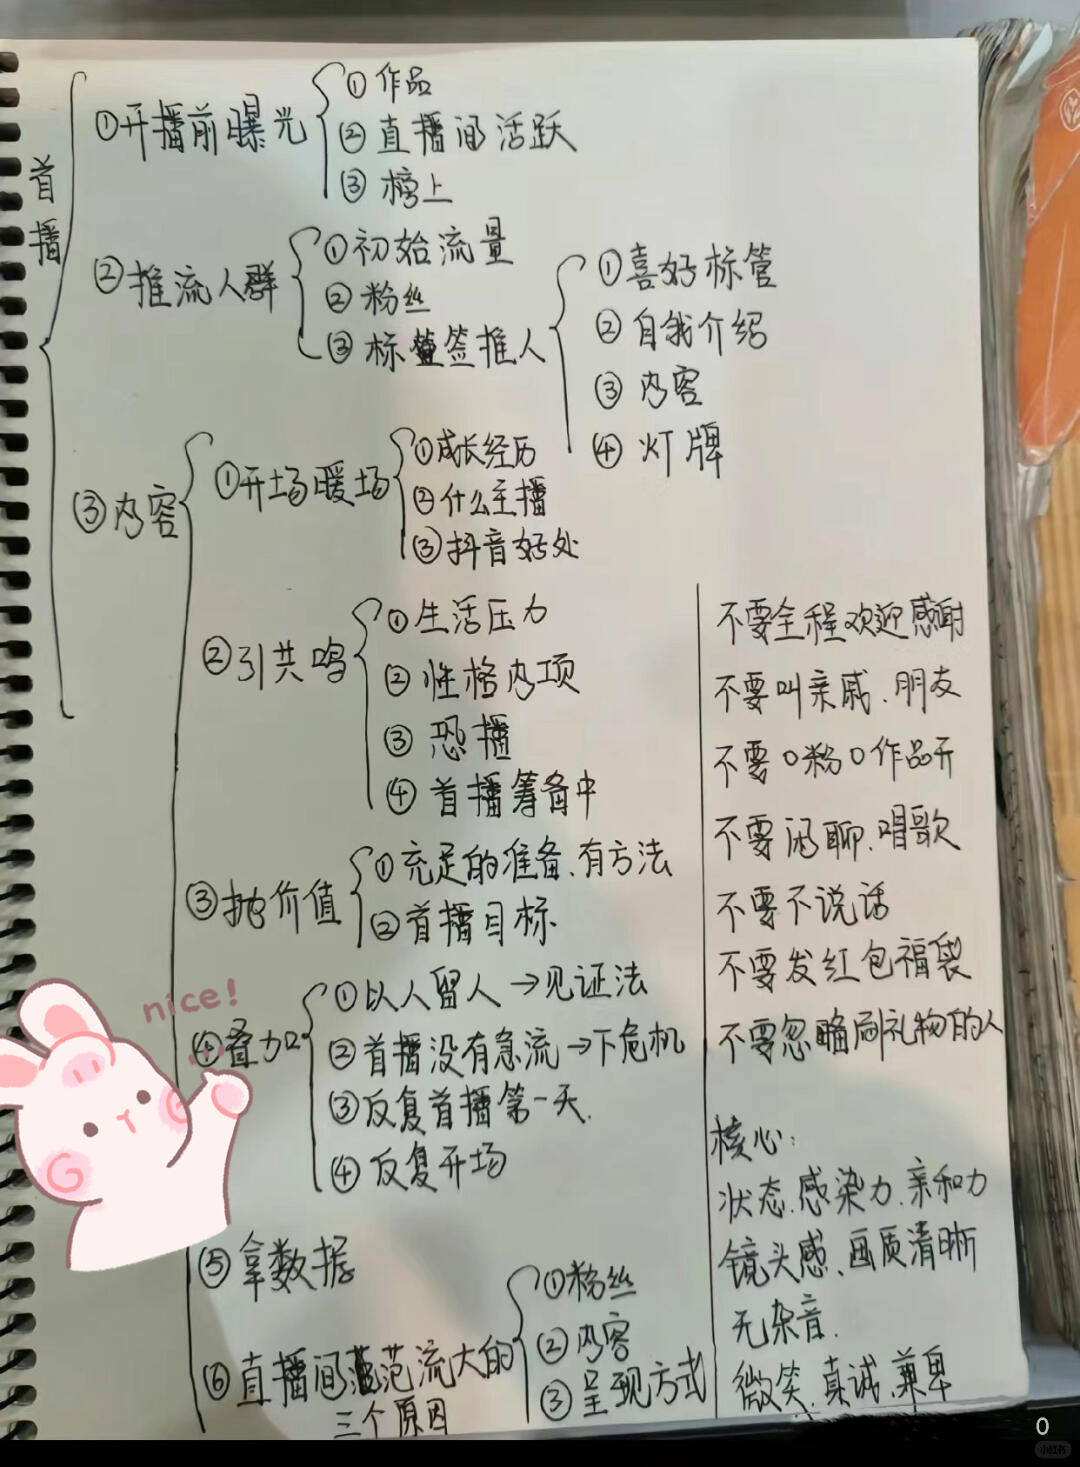 首播
①开播前曝光
①作品
②直播间活跃
③榜上
②推流人群
①初始流量
②粉丝
③标签推人
①喜好标管
②自我介绍
③内容
④灯牌
③内容
①开场暖场
①成长经历
②什么主播
③抖音好处
②引共鸣
①生活压力
②性格内项
③恐播
④首播筹备中
③抛价值
①充足的准备、有方法
②首播目标
④叠加
①以人留人→见证法
②首播没有急流→下危机
③反复首播第一天.
④反复开场
⑤拿数据
⑥直播间范流大的
三个原因
①粉丝
②内容
③呈现方式
不要全程欢迎感谢
不要叫亲戚、朋友
不要0粉0作品开
不要闲聊、唱歌
不要不说话
不要发红包福袋
不要忽略刷礼物的人
核心:
状态、感染力、亲和力
镜头感、画质清晰
无杂音.
微笑、真诚、兼卑
nice!
0
小红书